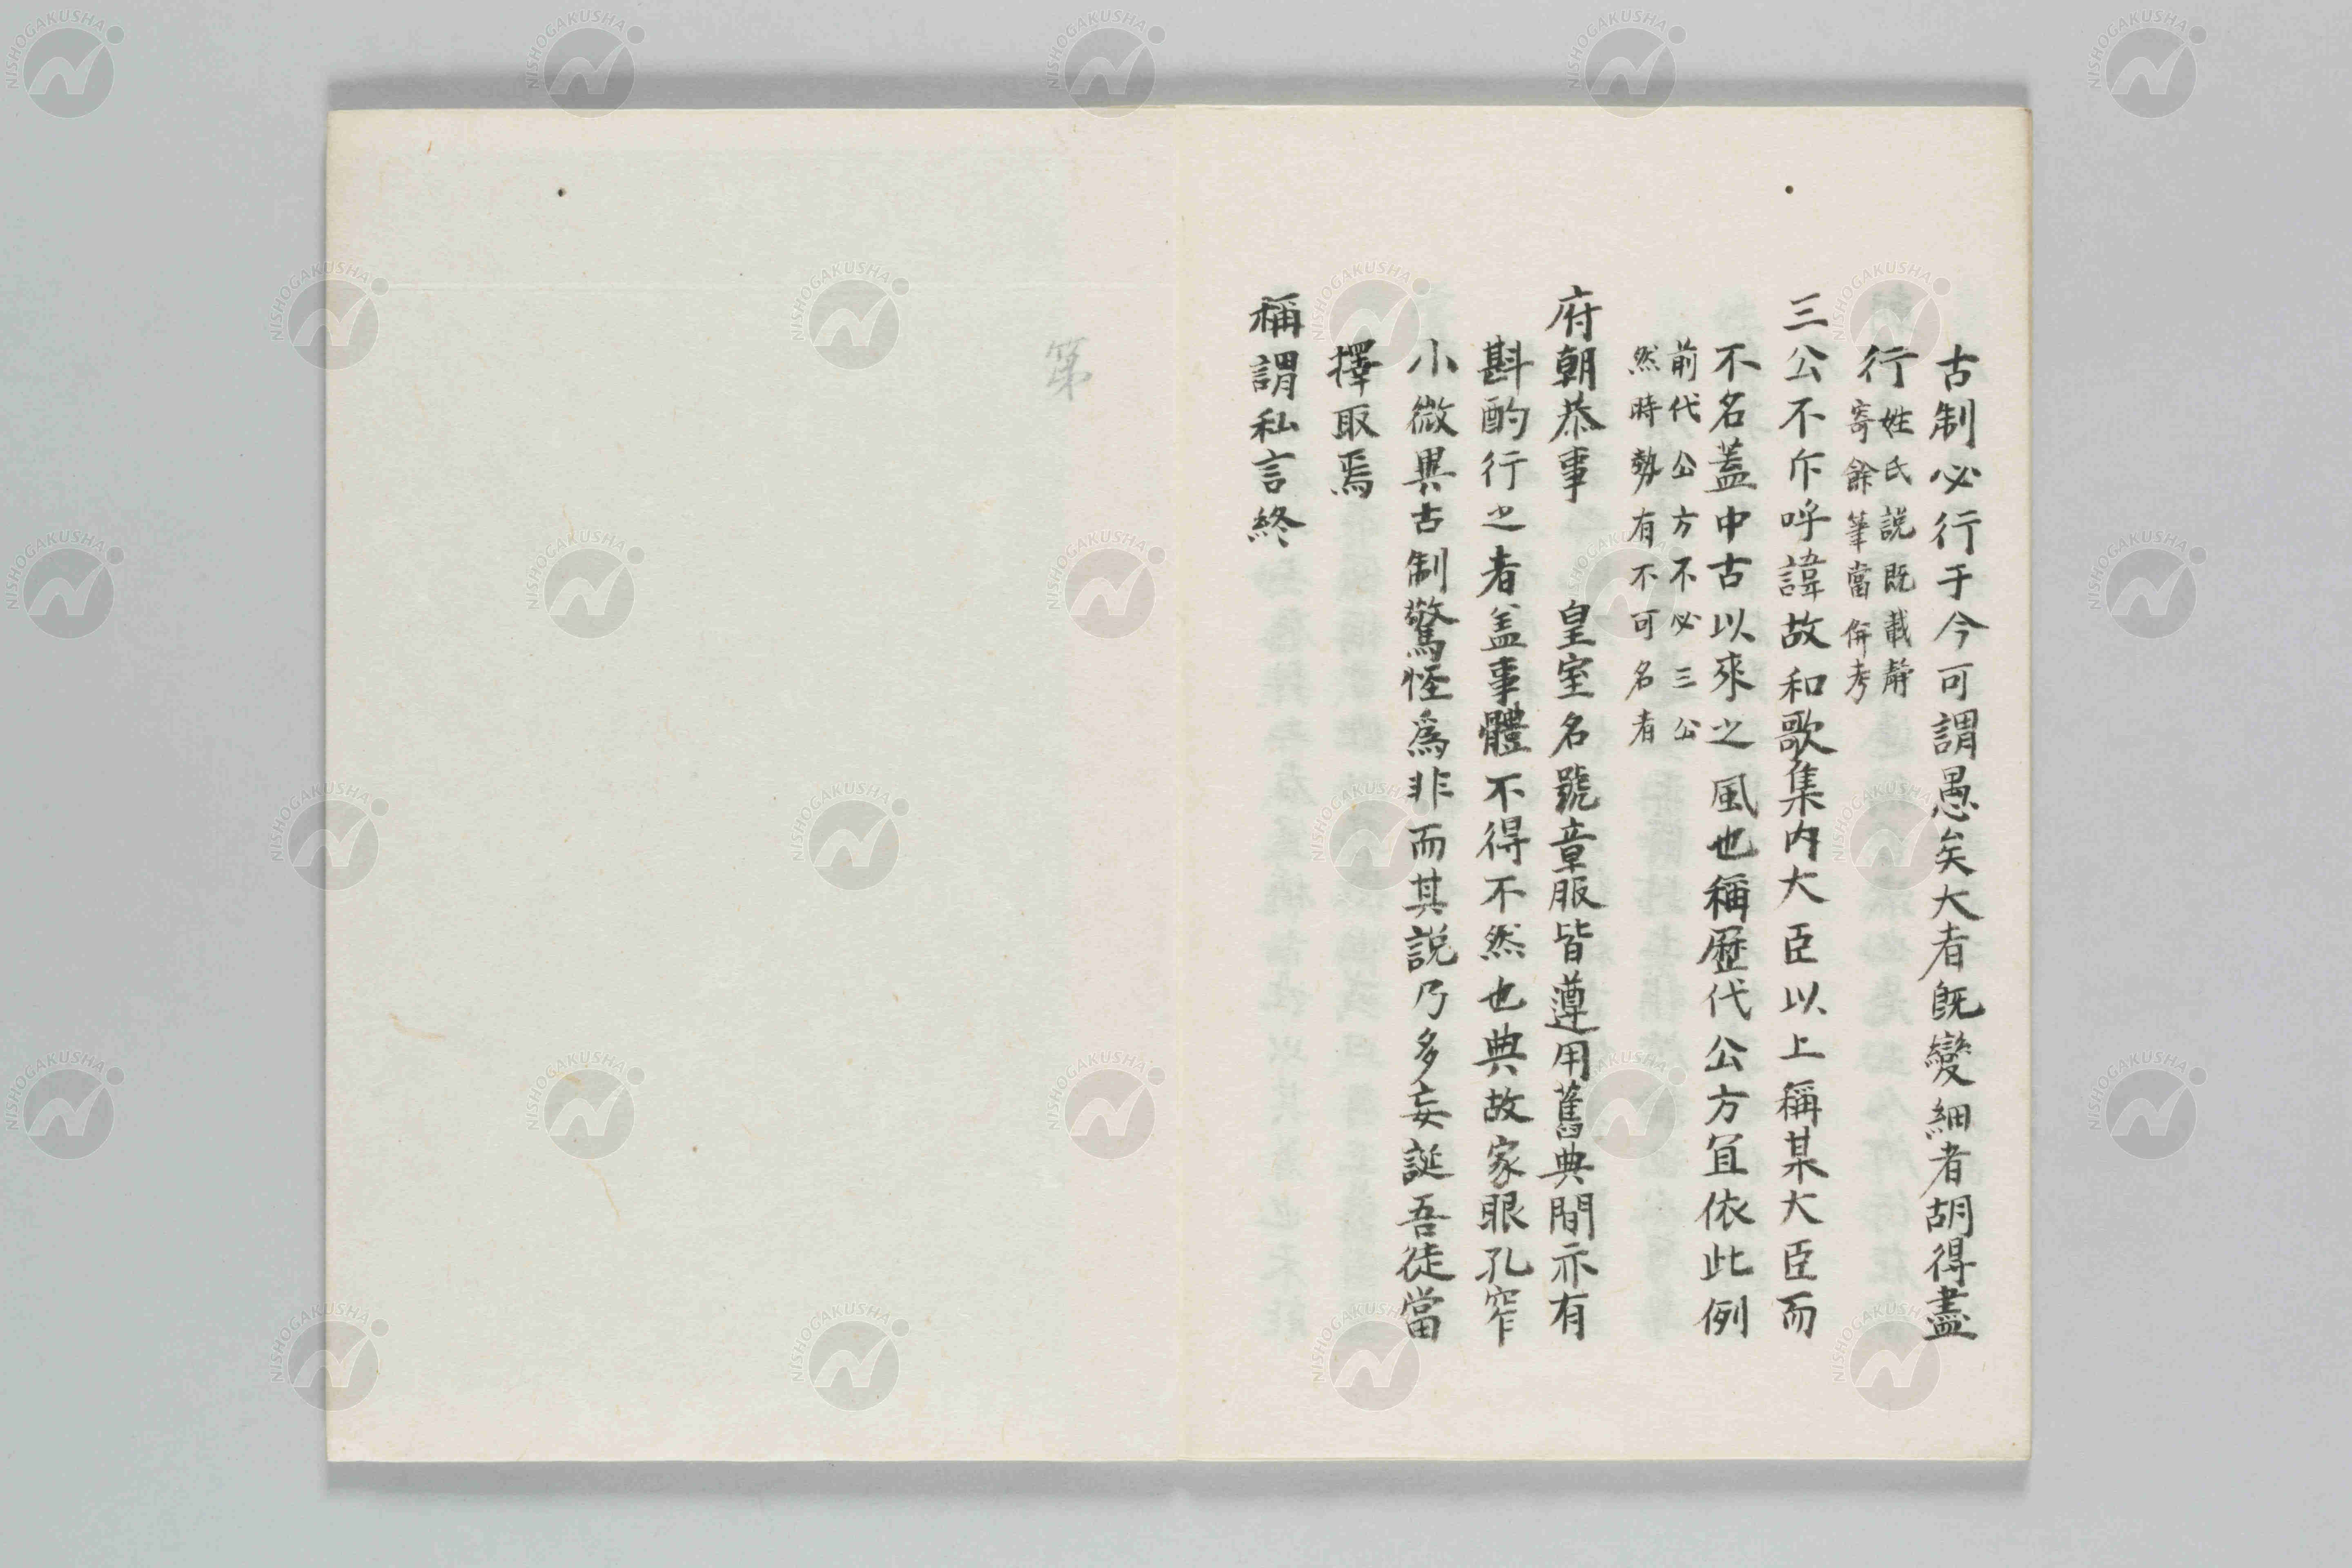 古制必行于今可謂愚矣大者既變細者胡得盡
行姓氏説既載靜
寄餘筆當併考
三公不斥呼諱故和歌集内大臣以上稱某大臣而
不名蓋中古以來之風也稱歷代公方宜依此例
前代公方不必三公
然時勢有不可名者
府朝恭事　皇室名號章服皆遵用舊典間亦有
斟酌行之者盖事體不得不然也典故家眼孔窄
小微異古制驚怪爲非而其説乃多妄誕吾徒當
擇取焉
稱謂私言終
第
NISHOGAKUSHA